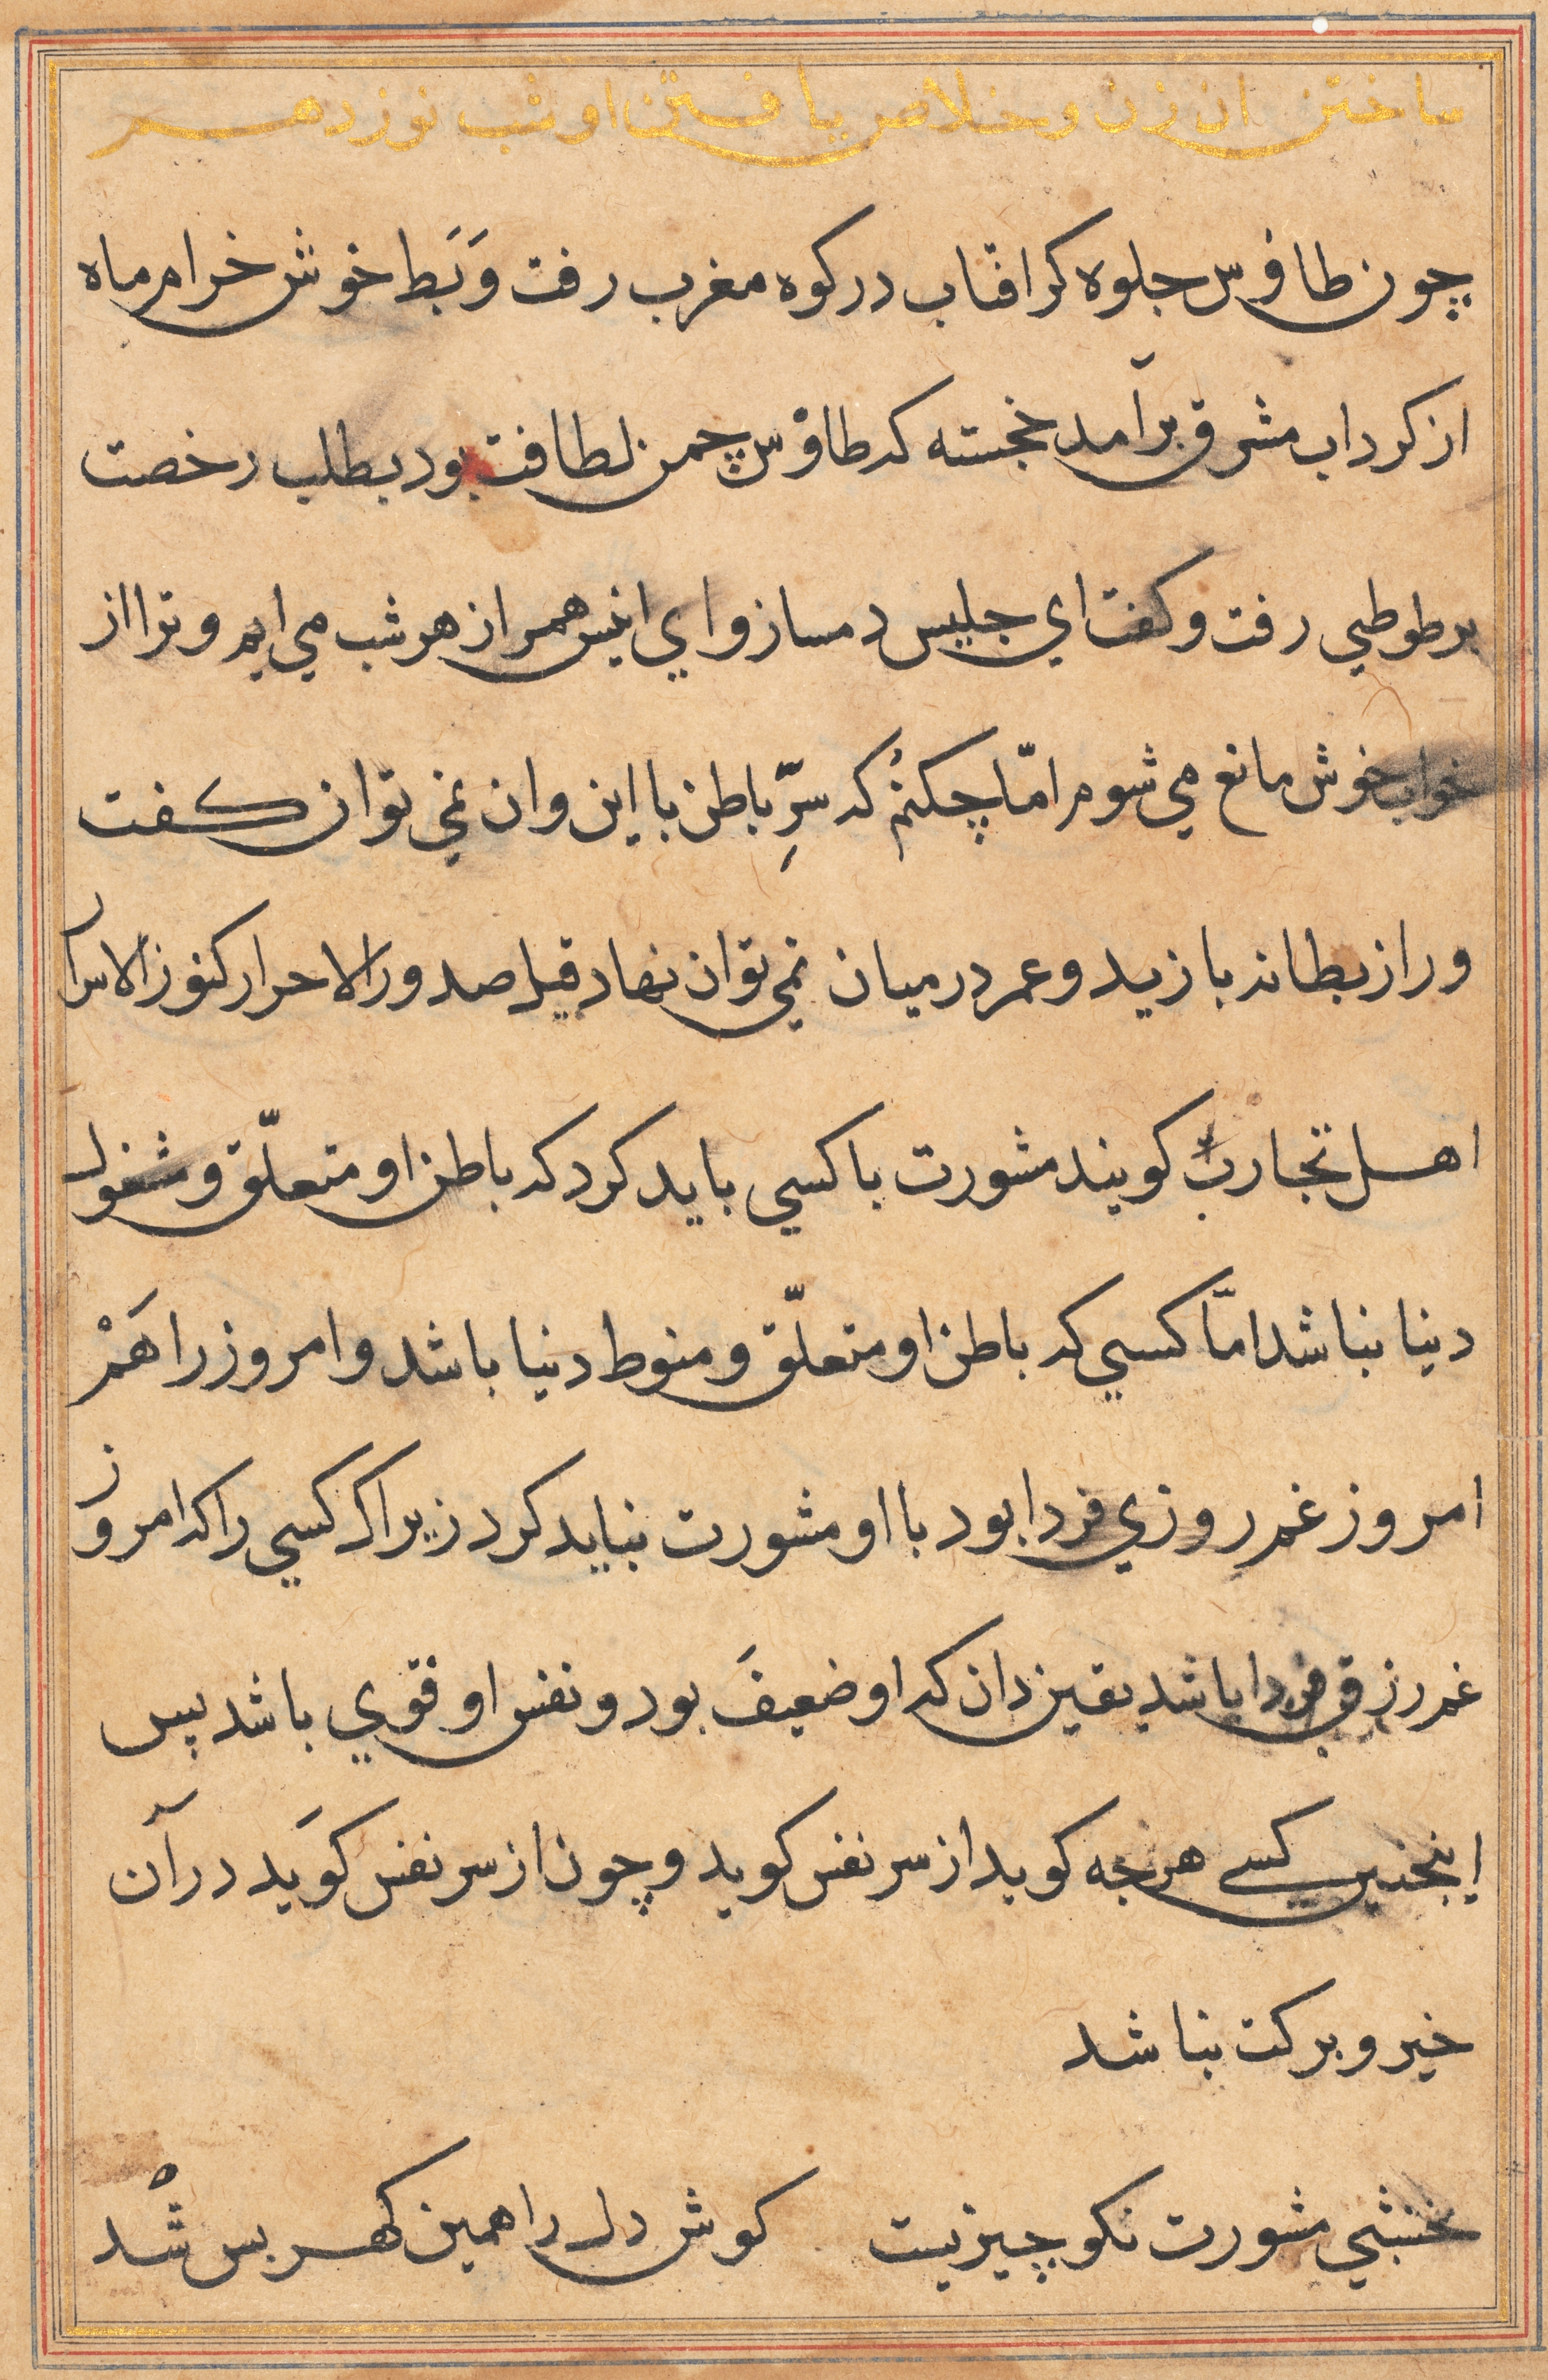 ساختن ان زن و خلاص یافتن او شب نوزدهم
چون طاؤس جلوه کر افتاب در کوه مغرب رفت وَ بَط خوش خرام ماه
از کرداب مشرق برآمد خجسته که طاؤس چمن لطافت بود بطلب رخصت
بر طوطي رفت و کفت اي جلیس دمساز و اي انیس همراز هر شب مي ایم و ترا از
خواب خوش مانع مي شوم امّا چکنمُ که سرِّ باطن با این و ان نمي توان کفت
و راز بطانه با زید و عمر در میان نمي توان نهاد قیل صدور الاحرار کنوز الاسرار
اهل تجارب کویند مشورت با کسي باید کرد که باطن او متعلّق و مشغول
دنیا نباشد امّا کسي که باطن او متعلّق و منوط دنیا باشد و امروز را هَمْ
امروز غم روزي فردا بود با او مشورت نباید کرد زیراکه کسي را که امروز
غم رزق فردا باشد یقین دان که او ضعیفَ بود و نفس او قوي باشد پس
اینجنین کسے هرجه کوید از سر نفس کوید و چون از سر نفس کوَید در آن
خیر و برکت نباشد
نخشبي مشورت نکو چیزیست کوش دل را همین کهر بس شُد